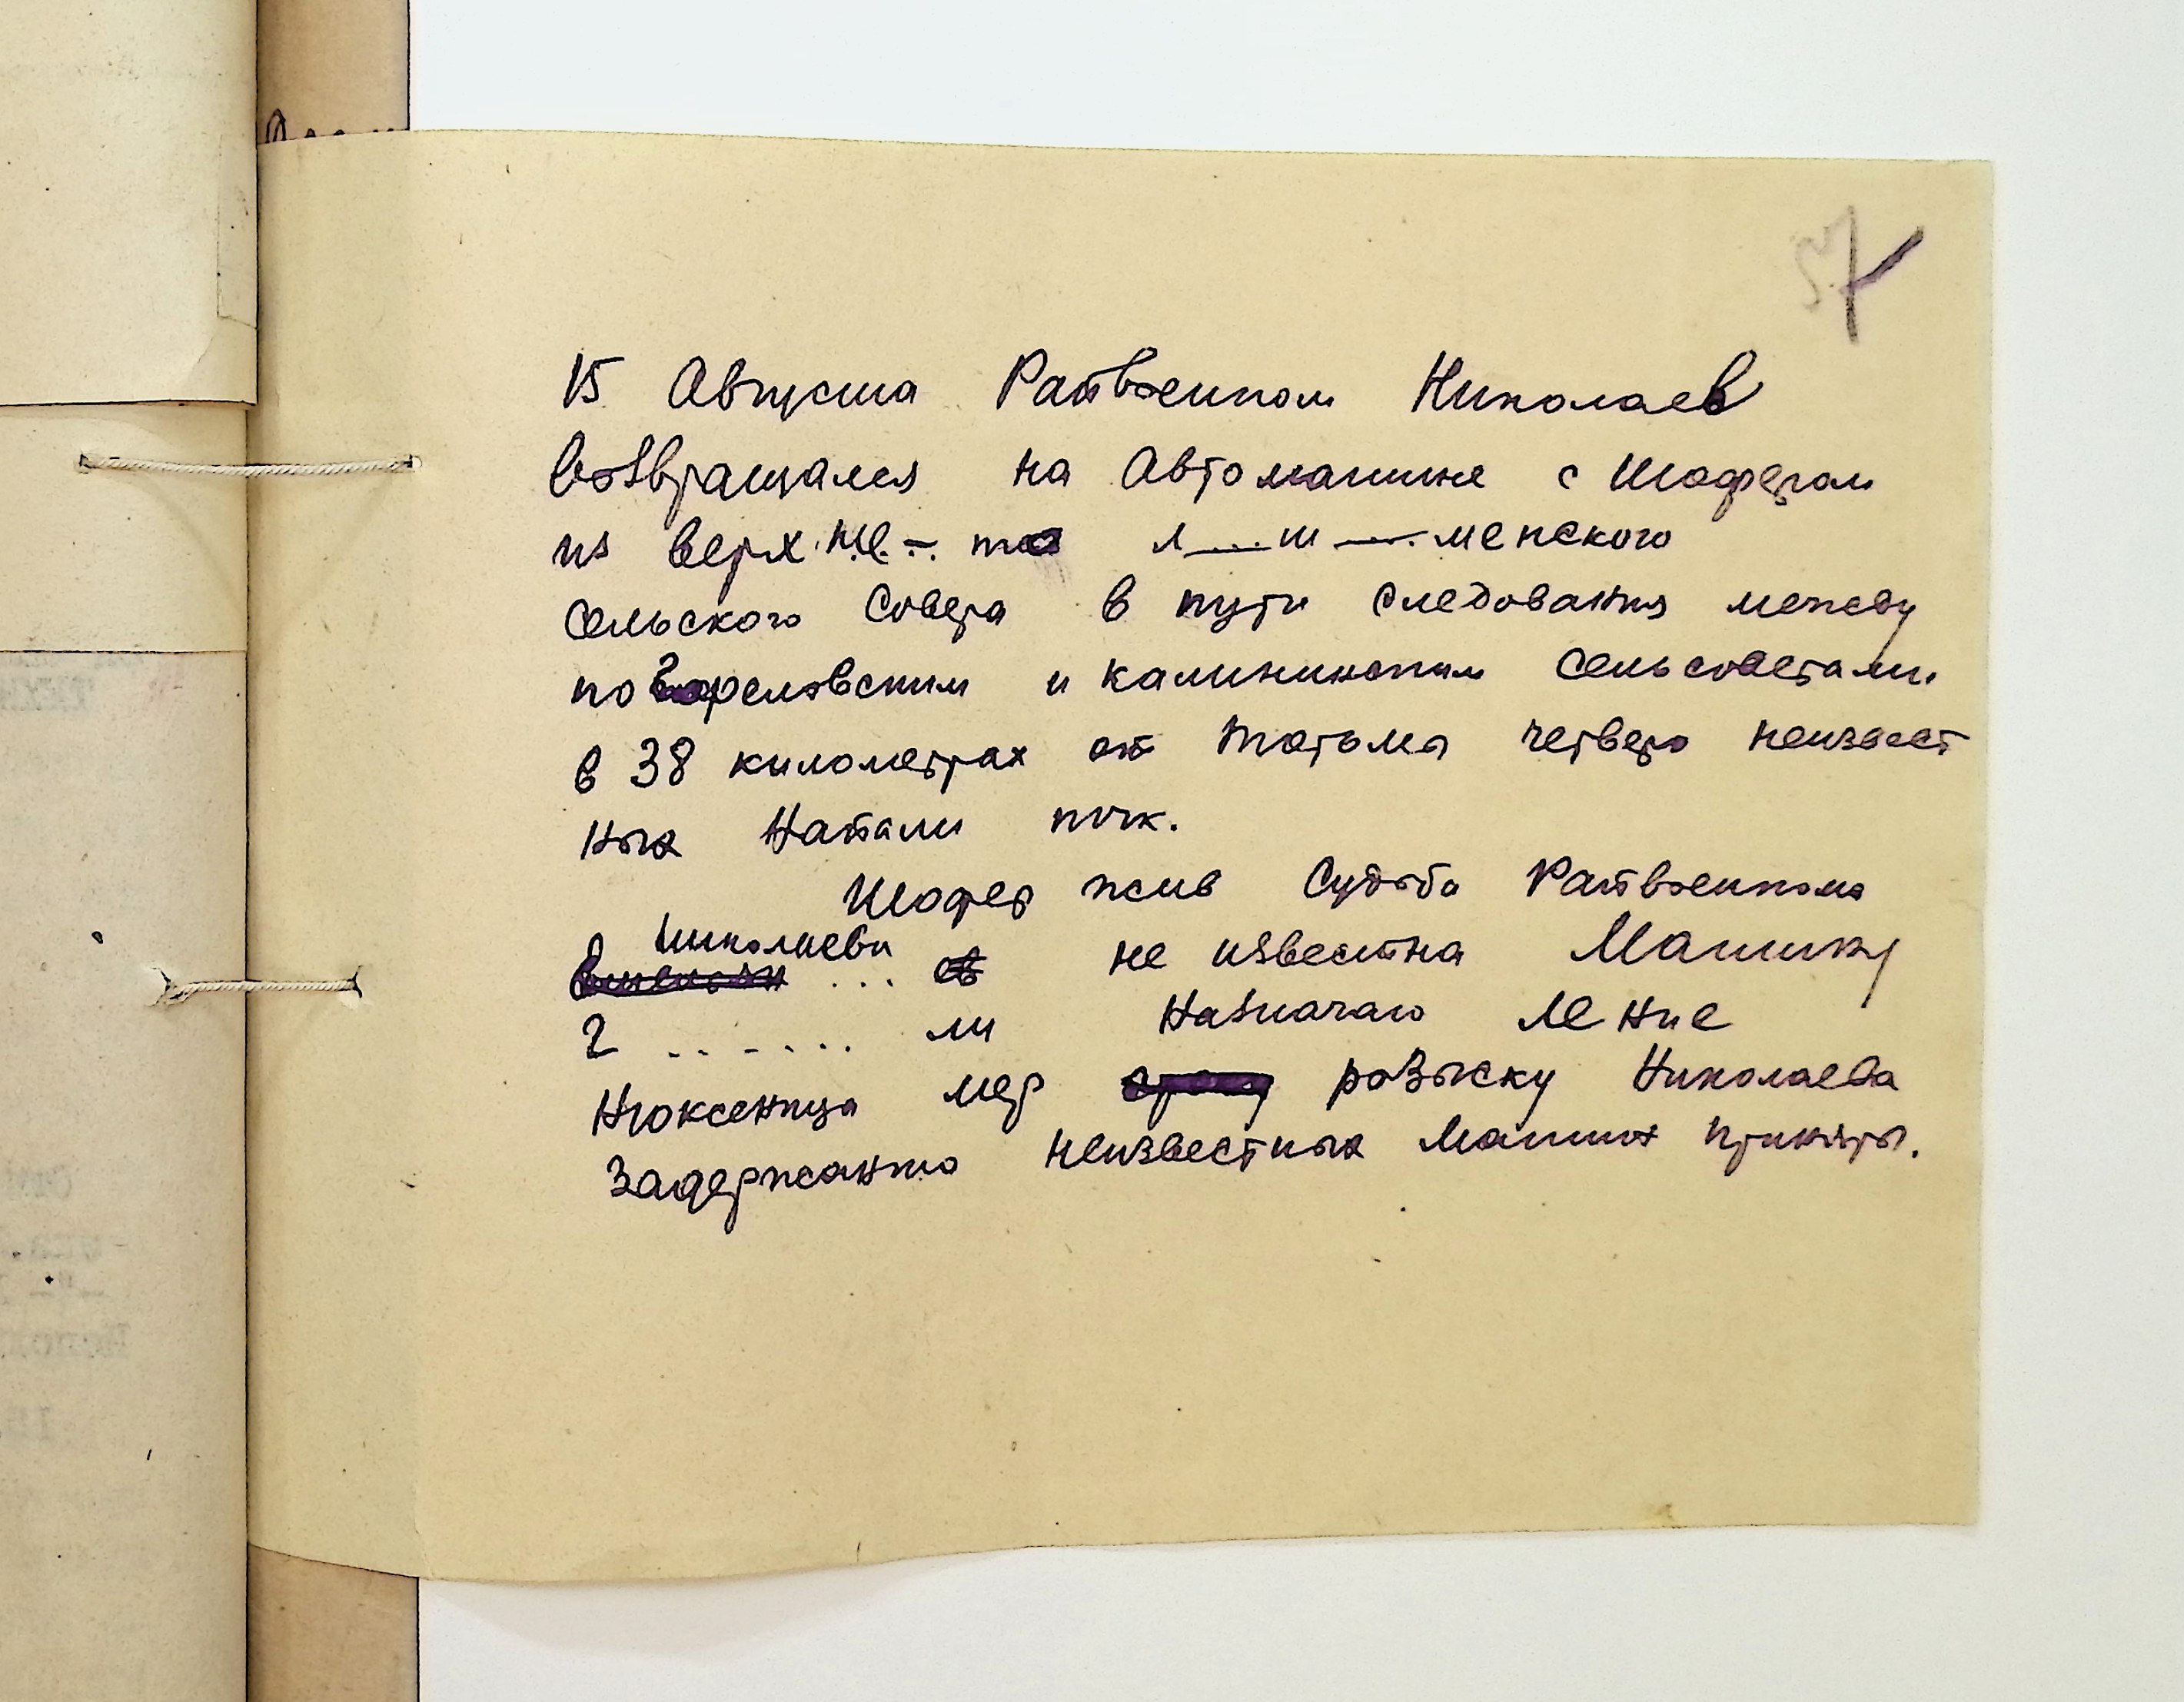 57
15 Августа Райвоенком Николаев
Возвращался на Автомашине с Шофером
из верх. те. - та л....ш ......менского
сельского Совета в пути следования между
погореловским и калининским сельсоветами.
в 38 километрах от Тотьма четверо неизвест
ных Напали
Шофер жив Судьба Райвоенкома
Николаева ... не известна Машину
2 ....... ли Назначаю ление
Нюксеница мер розыску Николаева
Задержанию неизвестных Машин приняты.